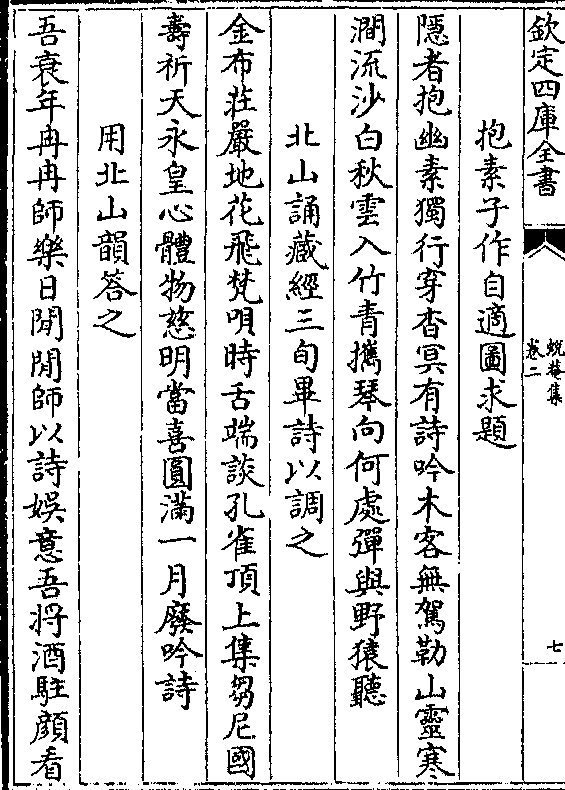 欽定四庫全書
蛻菴集
卷二
七
抱素子作自適圖求題
隱者抱幽素獨行穿杳冥有詩吟木客無駕勒山靈寒
澗流沙白秋雲入竹青攜琴向何處彈與野猿聽
北山誦藏經三旬畢詩以調之
金布莊嚴地花飛梵唄時舌端談孔雀頂上集芻尼國
壽祈天永皇心體物慈明當喜圓滿一月廢吟詩
用北山韻答之
吾衰年冉冉師樂日閒閒師以詩娛意吾將酒駐顔看